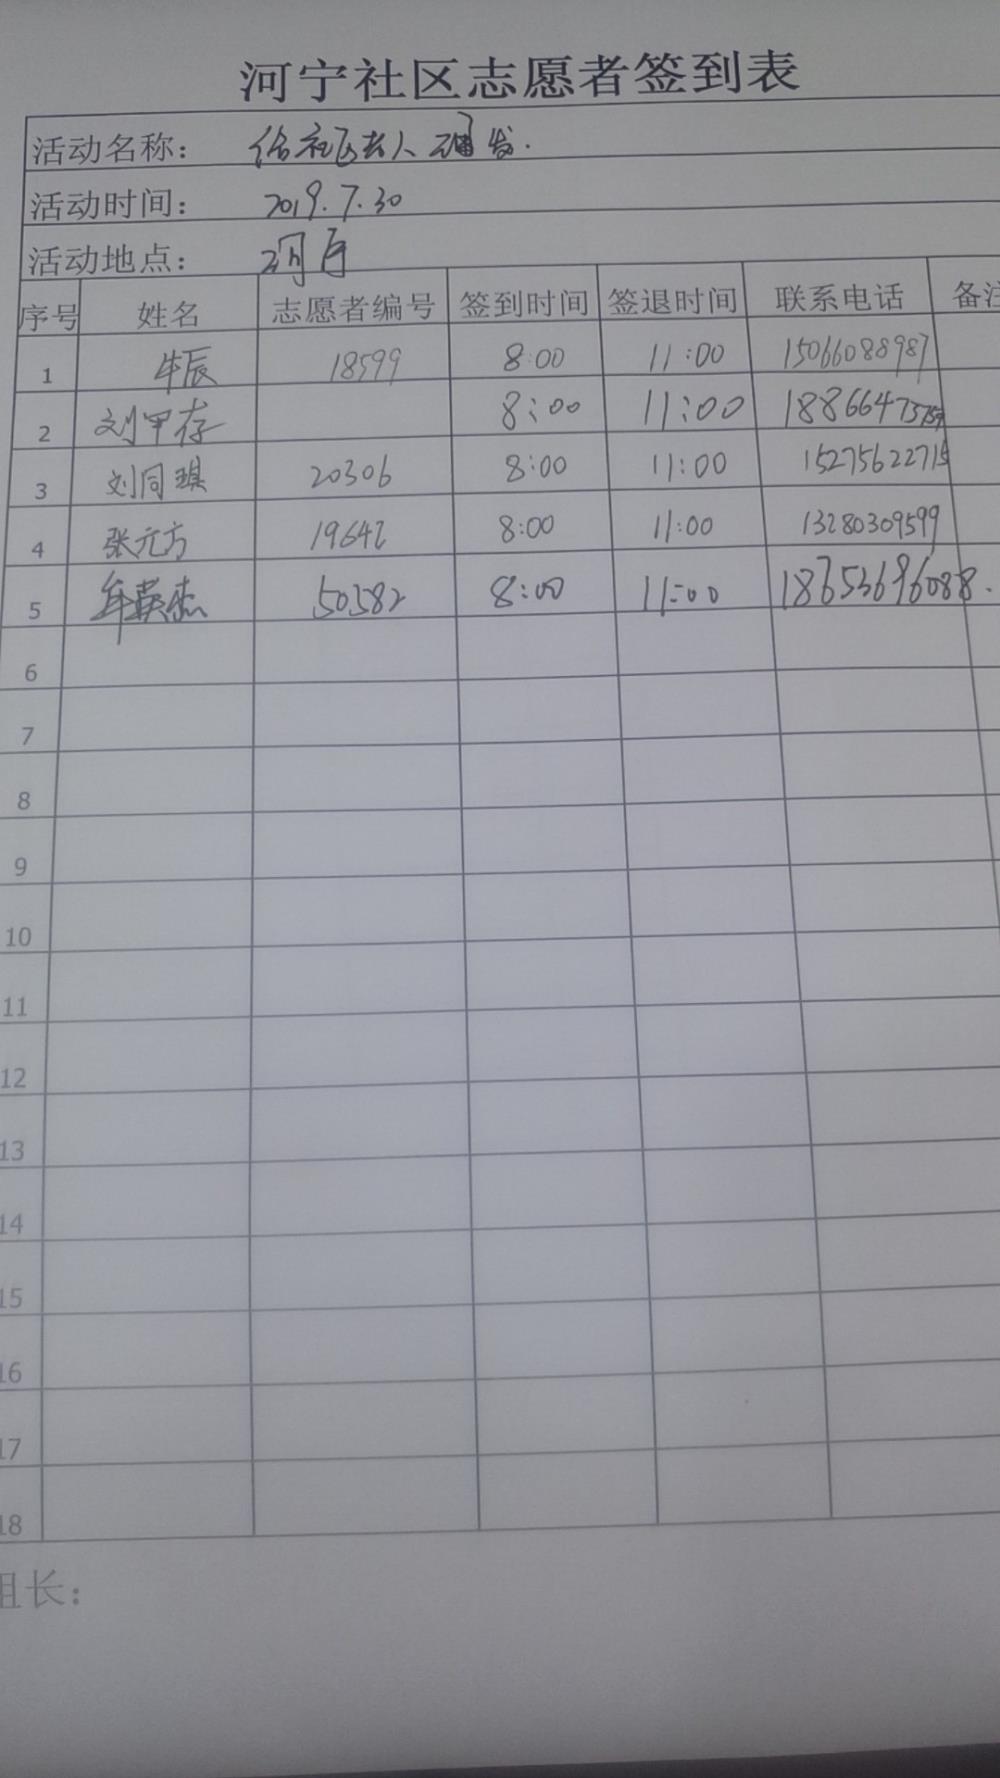 河宁社区志愿者签到表
活动名称： 给社区老人理发.
活动时间： 2019.7.30
活动地点：
序号 姓名 志愿者编号 签到时间 签退时间 联系电话 备注
1 牟辰 18599 8:00 11:00 15066088987
2 刘甲存 8:00 11:00
3 刘同琪 20306 8:00 11:00 15275622715
4 张元方 19642 8:00 11:00 13280309599
5 牟英杰 50382 8:00 11:00 18653696088.
6
7
8
9
10
11
12
13
14
15
16
17
18
组长：